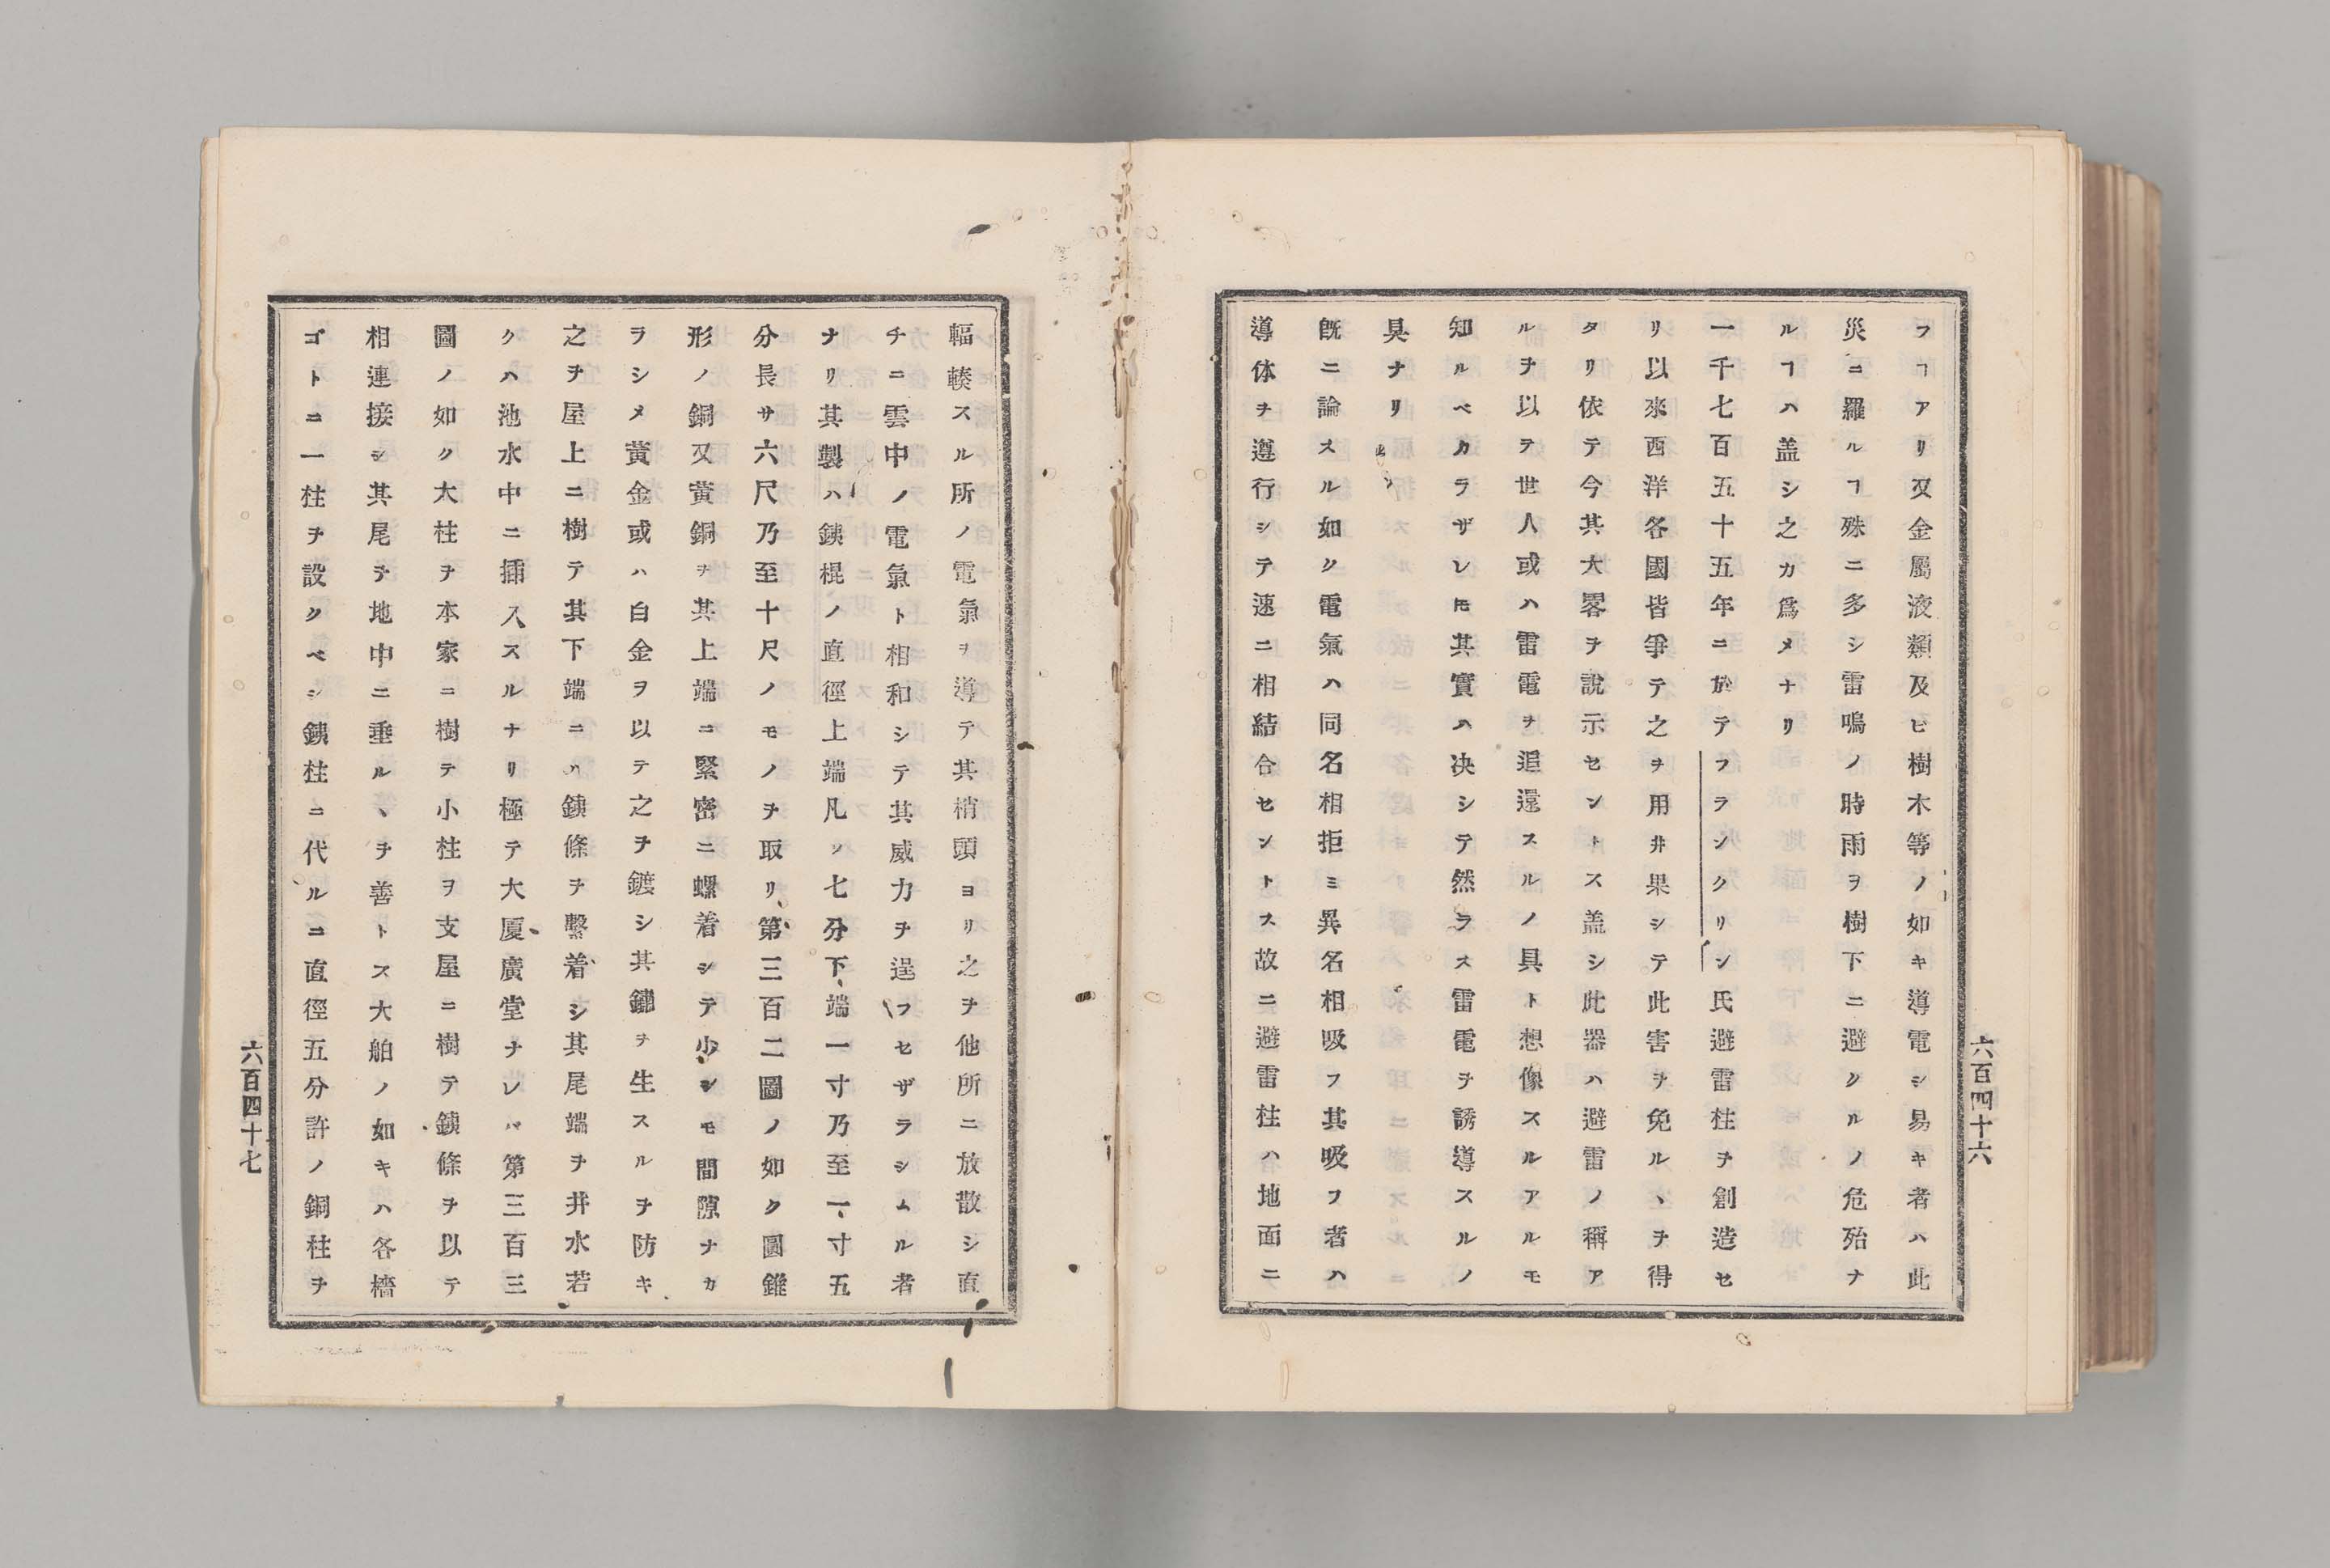 フヿアリ又金屬液類及ヒ樹木等ノ如キ導電シ易キ者ハ此
災ニ羅ルヿ殊ニ多シ雷鳴ノ時雨ヲ樹下ニ避クルノ危殆ナ
ルヿハ盖シ之カ爲メナリ
一千七百五十五年ニ於テフランクリン氏避雷柱ヲ創造セ
リ以來西洋各國皆爭テ之ヲ用井果シテ此害ヲ免ルヽヲ得
タリ依テ今其大畧ヲ說示セントス盖シ此器ハ避雷ノ稱ア
ルヲ以ヲ世人或ハ雷電ヲ追還スルノ具ト想像スルアルモ
知ルベカラザレ𪜈其實ハ决シテ然ラス雷電ヲ誘導スルノ
具ナリ
既ニ論スル如ク電氣ハ同名相拒ミ異名相吸フ其吸フ者ハ
導体ヲ遵行シテ速ニ相結合セントス故ニ避雷柱ハ地面ニ
六百四十六
輻輳スル所ノ電氣ヲ導テ其梢頭ヨリ之ヲ他所ニ放散シ直
チニ雲中ノ電氣ト相和シテ其威力ヲ逞フセザラシムル者
ナリ其製ハ鐵棍ノ直徑上端凡ソ七分下端一寸乃至一寸五
分長サ六尺乃至十尺ノモノヲ取リ第三百二圖ノ如ク圓錐
形ノ銅又黃銅ヲ其上端ニ緊密ニ螺着シテ少シモ間隙ナカ
ラシメ黃金或ハ白金ヲ以テ之ヲ鍍シ其鏽ヲ生スルヲ防キ
之ヲ屋上ニ樹テ其下端ニハ鐵條ヲ繫着シ其尾端ヲ井水若
クハ池水中ニ揷入スルナリ極テ大厦廣堂ナレバ第三百三
圖ノ如ク大柱ヲ本家ニ樹テ小柱ヲ支屋ニ樹テ鐵條ヲ以テ
相連接シ其尾ヲ地中ニ垂ルヽヲ善トス大舶ノ如キハ各檣
ゴトニ一柱ヲ設クベシ鐵柱ニ代ルニ直徑五分許ノ銅柱ヲ
六百四十七